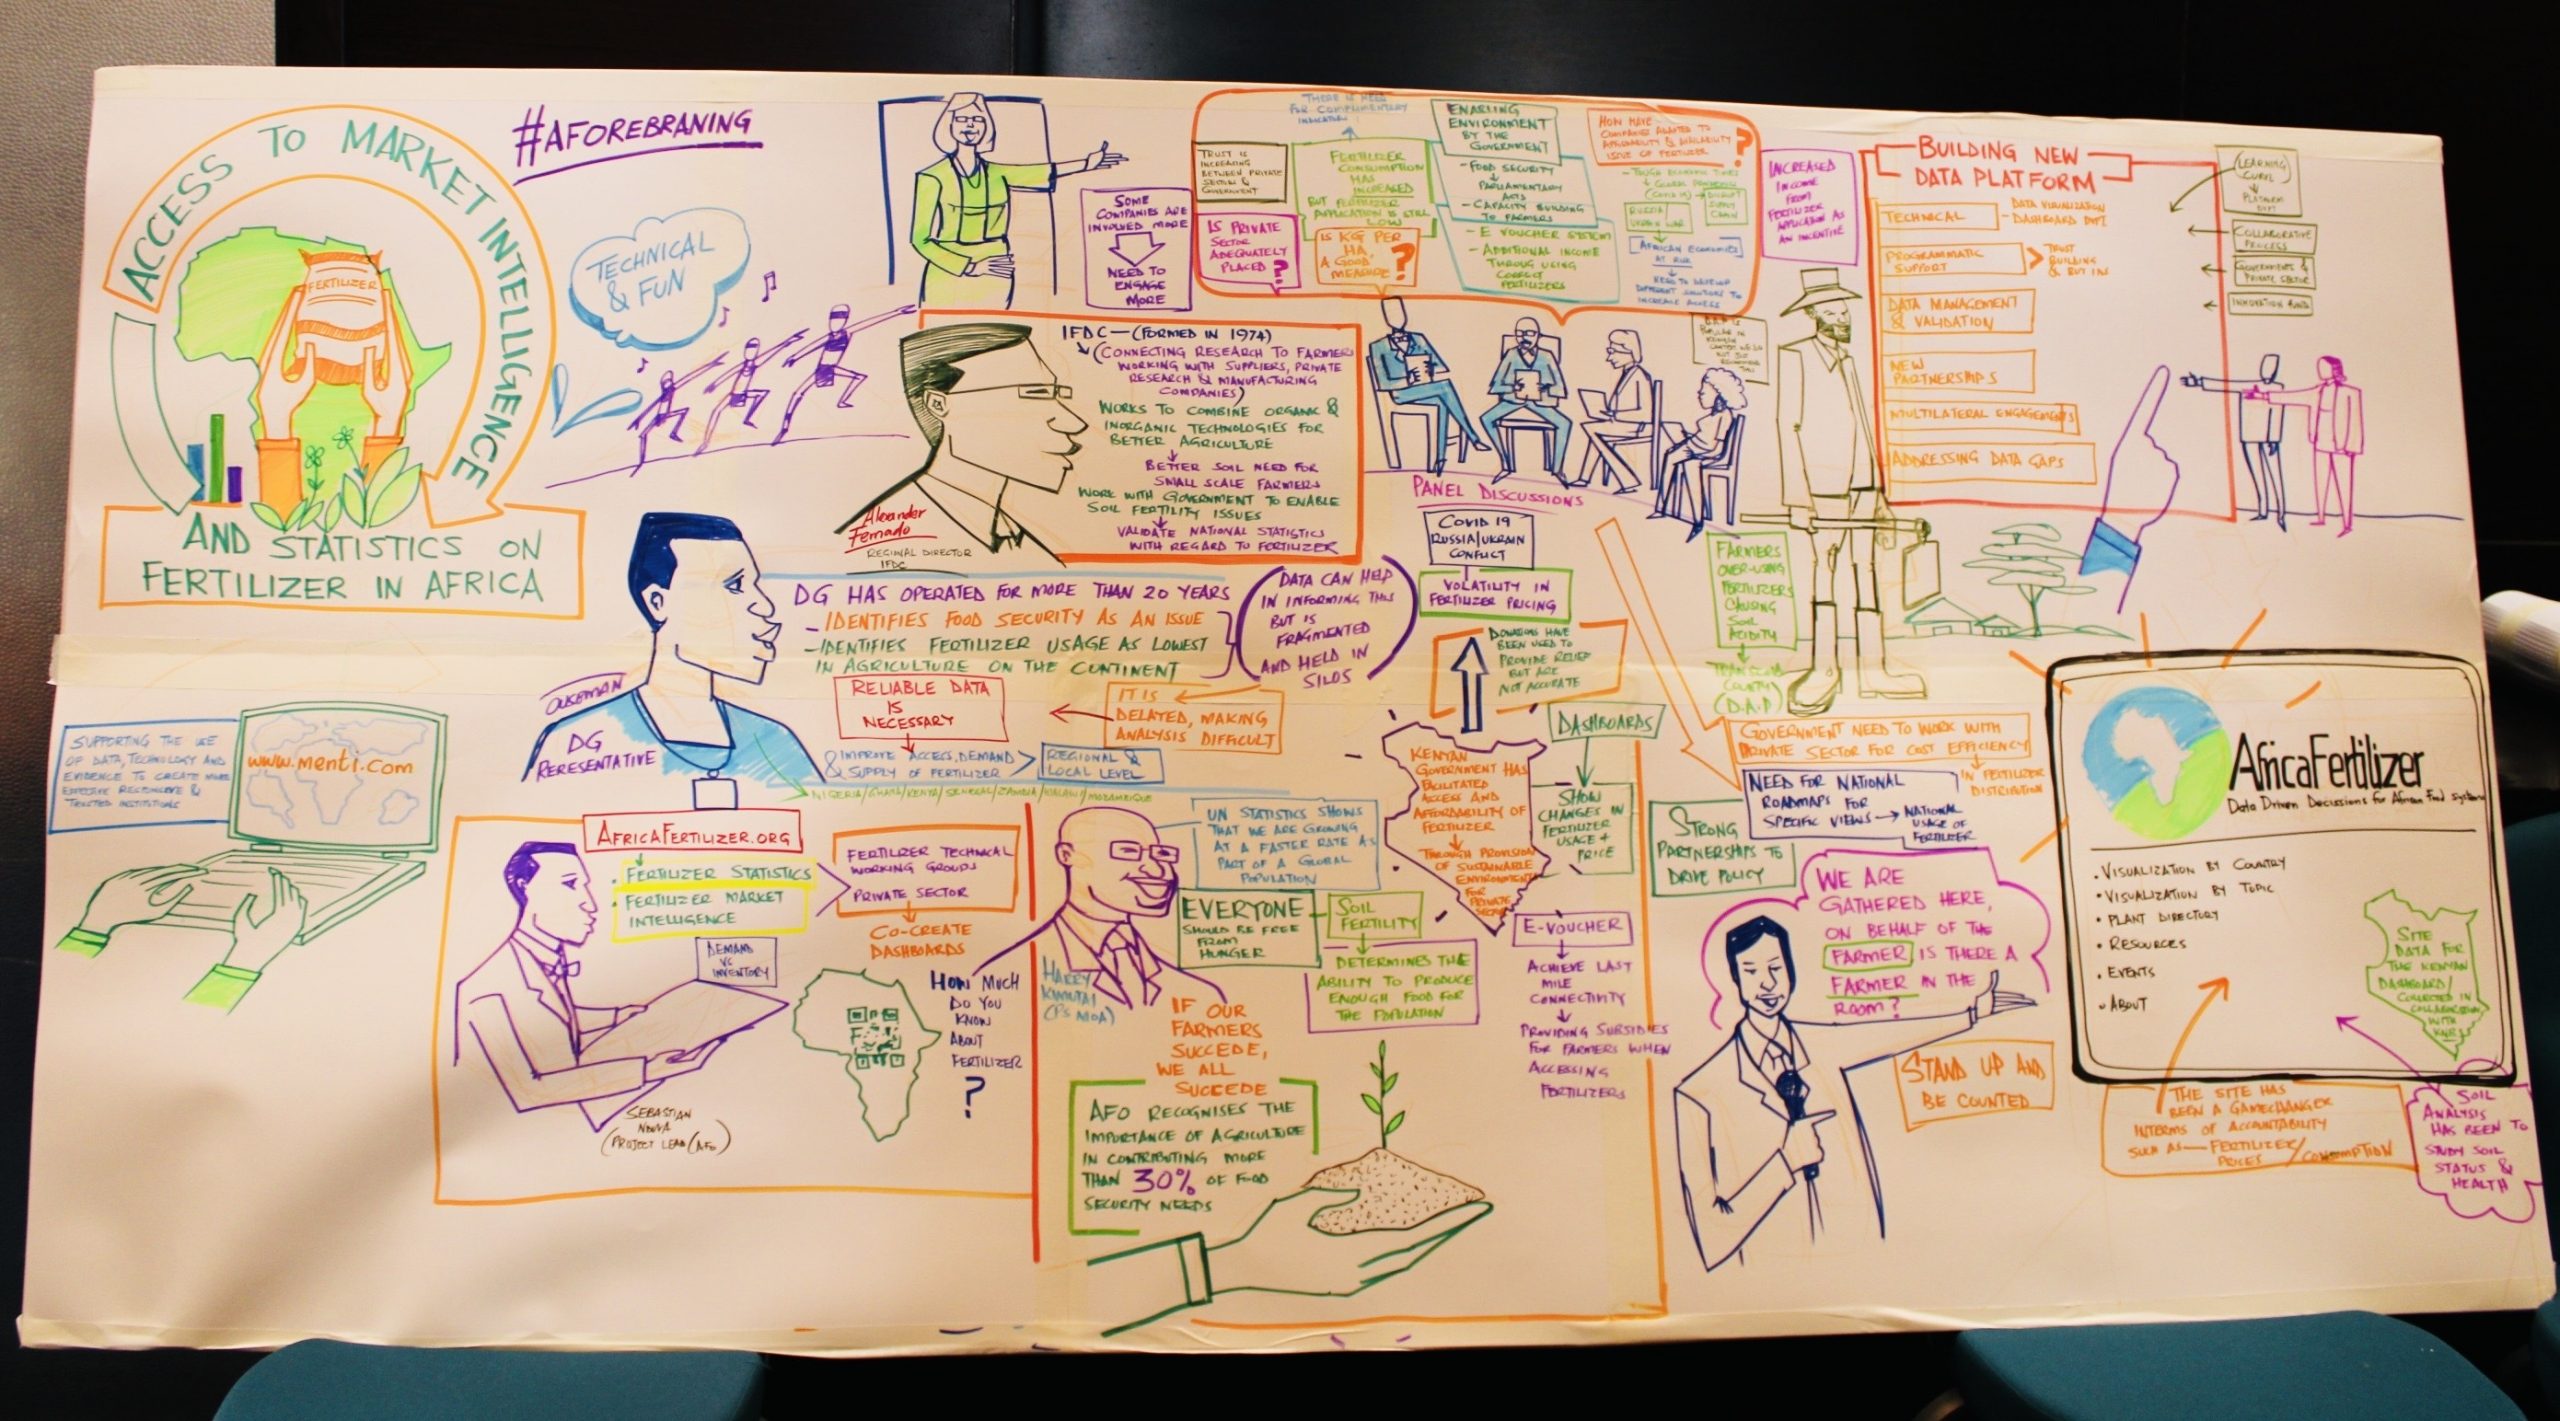 ACCESS TO MARKET INTELLIGENCE
AND STATISTICS ON
FERTILIZER IN AFRICA
FERTILIZER
#AFOREBRANING
TECHNICAL
& FUN
SOME
COMPANIES ARE
INVOLVED MORE
NEED TO
ENGAGE
MORE
TRUST IS
INCREASING
BETWEEN PRIVATE
SECTOR &
GOVERNMENT
IS PRIVATE
SECTOR
ADEQUATELY
PLACED?
THERE IS NEED
FOR COMPLIMENTARY
INDICATORS
FERTILIZER
CONSUMPTION
HAS
INCREASED
BUT FERTILIZER
APPLICATION IS STILL
LOW
IS KG PER
HA,
A GOOD
MEASURE?
ENABLING
ENVIRONMENT
BY THE
GOVERNMENT
- FOOD SECURITY
PARLIAMENTARY
ACTS
- CAPACITY BUILDING
TO FARMERS
- E VOUCHER SYSTEM
- ADDITIONAL INCOME
THROUG USING
CORRECT
FERTILIZERS
HOW HAVE
COMPANIES ADAPTED TO
AFFORDABILITY & AVAILABILITY
ISSUE OF FERTILIZER?
- TOUGH ECONOMIC TIMES
GLOBAL PANDEMIC
(COVID 19)
DISRUPT
SUPPLY
CHAIN
RUSSIA
UKRAIN WAR
AFRICAN ECONOMIES
AT RISK
NEED TO DEVELOP
DIFFERENT SOLUTIONS TO
INCREASE ACCESS
INCREASED
INCOME
FROM
FERTILIZER
APPLICATION AS
AN INCENTIVE
BUILDING NEW
DATA PLATFORM
TECHNICAL
DATA VISUALIZATION
- DASHBOARD DVPT
PROGRAMMATIC
SUPPORT
TRUST
BUILDING
& BUY IN
DATA MANAGEMENT
& VALIDATION
NEW
PARTNERSHIPS
MULTILATERAL ENGAGEMENTS
ADDRESSING DATA GAPS
LEARNING
CURVE
PLATFORM
DVPT
COLLABORATIVE
PROCESS
GOVERNMENTS &
PRIVATE SECTOR
INNOVATION
IFDC — (FORMED IN 1974)
(CONNECTING RESEARCH TO FARMERS
WORKING WITH SUPPLIERS, PRIVATE
RESEARCH & MANUFACTURING
COMPANIES)
WORKS TO COMBINE ORGANIC &
INORGANIC TECHNOLOGIES FOR
BETTER AGRICULTURE
BETTER SOIL NEED FOR
SMALL SCALE FARMERS
WORK WITH GOVERNMENT TO ENABLE
SOIL FERTILITY ISSUES
VALIDATE NATIONAL STATISTICS
WITH REGARD TO FERTILIZER
Alexander
Fernado
REGIONAL DIRECTOR
IFDC
PANEL DISCUSSIONS
COVID 19
RUSSIA/UKRAIN
CONFLICT
VOLATILITY IN
FERTILIZER PRICING
DONATIONS HAVE
BEEN USED TO
PROVIDE RELIEF
BUT ARE
NOT ACCURATE
FARMERS
OVER-USING
FERTILIZERS
CAUSING
SOIL
ACIDITY
COUNTY
(D.A.P)
DG HAS OPERATED FOR MORE THAN 20 YEARS
- IDENTIFIES FOOD SECURITY AS AN ISSUE
- IDENTIFIES FERTILIZER USAGE AS LOWEST
IN AGRICULTURE ON THE CONTINENT
(DATA CAN HELP
IN INFORMING THIS
BUT IS
FRAGMENTED
AND HELD IN
SILOS)
RELIABLE DATA
IS
NECESSARY
IT IS
DELAYED, MAKING
ANALYSIS DIFFICULT
& IMPROVE ACCESS, DEMAND
& SUPPLY OF FERTILIZER
REGIONAL &
LOCAL LEVEL
NIGERIA/GHANA/KENYA/SENEGAL/ZAMBIA/MALAWI/MOZAMBIQUE
DG
RERESENTATIVE
SUPPORTING THE USE
OF DATA, TECHNOLOGY AND
EVIDENCE TO CREATE MORE
EFFECTIVE RESPONSIVE &
TRUSTED INSTITUTIONS
www.menti.com
AFRICAFERTILIZER.ORG
. FERTILIZER STATISTICS
. FERTILIZER MARKET
INTELLIGENCE
FERTILIZER TECHNICAL
WORKING GROUPS
PRIVATE SECTOR
CO-CREATE
DASHBOARDS
DEMAND
VS
INVENTORY
HOW MUCH
DO YOU
KNOW
ABOUT
FERTILIZER
?
SEBASTIAN
(PROJECT LEAD (AFO)
HARRY
KIMUTAI
(PS MOA)
UN STATISTICS SHOWS
THAT WE ARE GROWING
AT A FASTER RATE AS
PART OF A GLOBAL
POPULATION
EVERYONE
SHOULD BE FREE
FROM
HUNGER
SOIL
FERTILITY
DETERMINES THE
ABILITY TO PRODUCE
ENOUGH FOOD FOR
THE POPULATION
IF OUR
FARMERS
SUCCEDE,
WE ALL
SUCCEDE
AFO RECOGNISES THE
IMPORTANCE OF AGRICULTURE
IN CONTRIBUTING MORE
THAN 30% OF FOOD
SECURITY NEEDS
KENYAN
GOVERNMENT HAS
FACILITATED
ACCESS AND
AFFORDABILITY OF
FERTILIZER
THROUGH PROVISION
OF SUSTAINABLE
ENVIRONMENT
FOR
PRIVATE
SECTOR
DASHBOARDS
SHOW
CHANGES IN
FERTILIZER
USAGE +
PRICE
E-VOUCHER
ACHIEVE LAST
MILE
CONNECTIVITY
PROVIDING SUBSIDIES
FOR FARMERS WHEN
ACCESSING
FERTILIZERS
GOVERNMENT NEED TO WORK WITH
PRIVATE SECTOR FOR COST EFFICIENCY
IN FERTILIZER
DISTRIBUTION
NEED FOR NATIONAL
ROADMAPS FOR
SPECIFIC VIEWS
NATIONAL
USAGE OF
FERTILIZER
STRONG
PARTNERSHIPS TO
DRIVE POLICY
WE ARE
GATHERED HERE,
ON BEHALF OF THE
FARMER IS THERE A
FARMER IN THE
ROOM?
STAND UP AND
BE COUNTED
AfricaFertilizer
Data Driven Decissions for African Food systems
. VISUALIZATION BY COUNTRY
. VISUALIZATION BY TOPIC
. PLANT DIRECTORY
. RESOURCES
. EVENTS
. ABOUT
SITE
DATA FOR
THE KENYAN
DASHBOARD/
COLLECTED IN
COLLABORATION
WITH
THE SITE HAS
BEEN A GAMECHANGER
INTERMS OF ACCOUNTABILITY
SUCH AS — FERTILIZER
PRICES / CONSUMPTION
SOIL
ANALYSIS
HAS BEEN TO
STUDY SOIL
STATUS &
HEALTH